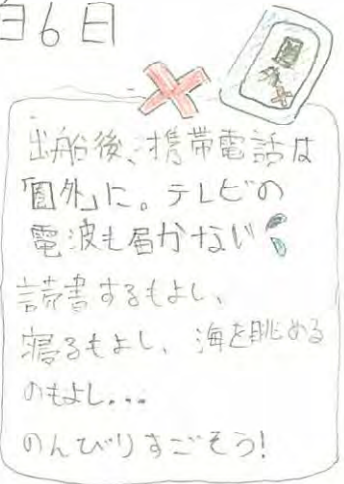 月6日
圏外
出船後、携帯電話は
「圏外」に。テレビの
電波も届かない
読書するもよし、
寝るもよし、海を眺める
のもよし...
のんびりすごそう!